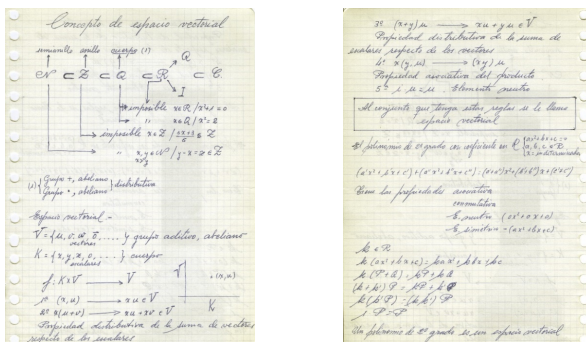 Concepto de espacio vectorial
semianillo anillo cuerpo (1) Q
N ⊂ Z ⊂ Q ⊂ R ⊂ C
I
imposible x∈R / x²+1=0
" x∈Q / x²=2
imposible x∈Z / ∉ Z
" x,y∈N / y-x=z∈Z
x>y
(1) { Grupo +, abeliano } distributiva
Grupo ·, abeliano
Espacio vectorial -
V = {u, v, w, ō, .....} grupo aditivo, abeliano
vectores
K = {x, y, z, 0, ....} cuerpo
escalares
f: K x V → V
V
·(x,u)
K
1º (x,u) → xu ∈ V
2º x(u+v) → xu + xv ∈ V
Propiedad distributiva de la suma de vectores
respecto de los escalares
3º (x+y)u → xu + yu ∈ V
Propiedad distributiva de la suma de
escalares respecto de los vectores
4º x(y.u) → (xy)u
Propiedad asociativa del producto
5º 1·u = u. Elemento neutro
Al conjunto que tenga estas reglas se le llama
espacio vectorial
polinomio de 2º grado con coeficiente en R { ax²+bx+c=0
a, b, c ∈ R
x = indeterminada
(a'x²+b'x+c')+(a''x²+b''x+c'') = (a'+a'')x²+(b'+b'')x+(c'+c'')
Tiene las propiedades asociativa
conmutativa
E. neutro (0x²+0x+0)
E. simétrico -(ax²+bx+c)
k ∈ R
k(ax²+bx+c) = kax²+kbx+kc
k(P+Q) = kP+kQ
(k+k')P = kP+k'P
k(k'P) = (kk')P
1·P=P
Un polinomio de 2º grado es un espacio vectorial